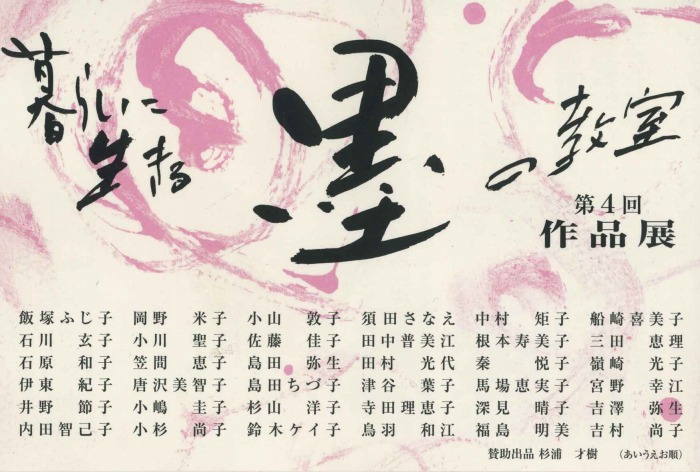 暮らしに
生きる
墨
の教室
第4回
作品展
飯塚ふじ子 岡野米子 小山敦子 須田さなえ 中村矩子 船崎喜美子
石川玄子 小川聖子 佐藤佳子 田中普美江 根本寿美子 三田恵理
石原和子 笠間恵子 島田弥生 田村光代 秦悦子 嶺崎光子
伊東紀子 唐沢美智子 島田ちづ子 津谷葉子 馬場恵実子 宮野幸江
井野節子 小嶋圭子 杉山洋子 寺田理恵子 深見晴子 吉澤弥生
内田智己子 小杉尚子 鈴木ケイ子 鳥羽和江 福島明美 吉村尚子
賛助出品 杉浦 才樹 (あいうえお順)